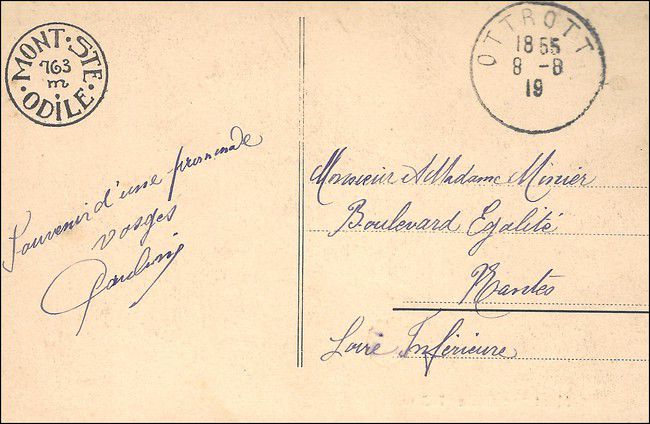 MONT · STE · ODILE ·
763
m
OTTROTT
18 55
8 -8
19
Souvenir d'une promenade
vosges
Monsieur & Madame Minier
Boulevard Egalité
Nantes
Loire Inférieure